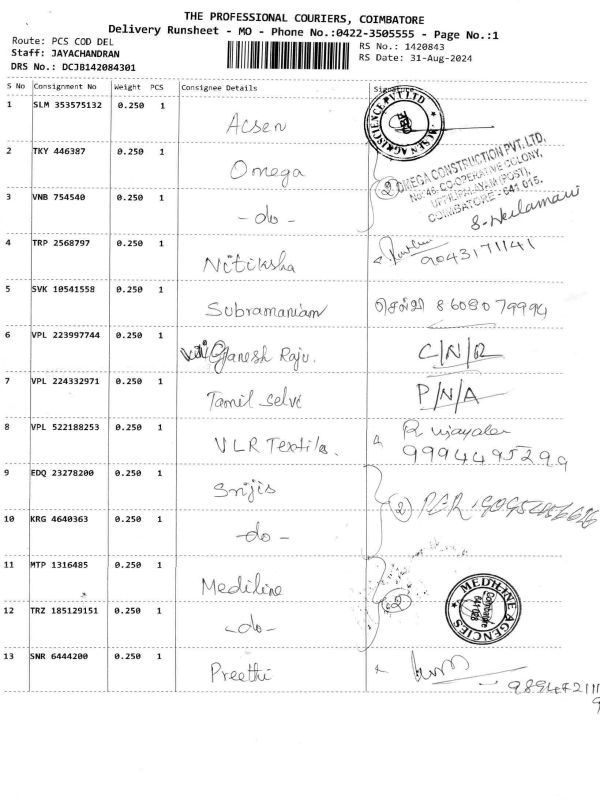 THE PROFESSIONAL COURIERS, COIMBATORE
Delivery Runsheet - MO - Phone No.:0422-3505555 - Page No.:1
Route: PCS COD DEL
Staff: JAYACHANDRAN
DRS No.: DCJB142084301
RS No.: 1420843
RS Date: 31-Aug-2024
S No Consignment No Weight PCS Consignee Details Signature
1 SLM 353575132 0.250 1 Acsen
ACSEN AGRISCIENCE PVT LTD
2 TKY 446387 0.250 1 Omega
2 OMEGA CONSTRUCTION PVT. LTD.
No. 46, CO-OPERATIVE COLONY,
UPPILIPALAYAM (POST),
COIMBATORE - 641 015.
3 VNB 754540 0.250 1 - do -
4 TRP 2568797 0.250 1 Nitiksha 9043171141
5 SVK 10541558 0.250 1 Subramaniam செல்வி 8608079994
6 VPL 223997744 0.250 1 Ganesh Raju. C/N/R
7 VPL 224332971 0.250 1 Tamil selvi P/N/A
8 VPL 522188253 0.250 1 VLR Textile. R Vijayalan
9994495299
9 EDQ 23278200 0.250 1 Srijis
2
10 KRG 4640363 0.250 1 - do -
11 MTP 1316485 0.250 1 Mediline
2 MEDILINE AGENCIES
Coimbatore
641 028
12 TRZ 185129151 0.250 1 - do -
13 SNR 6444200 0.250 1 Preethi